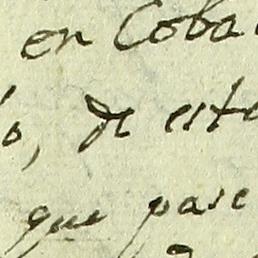 en Coba
o, de este
que pase